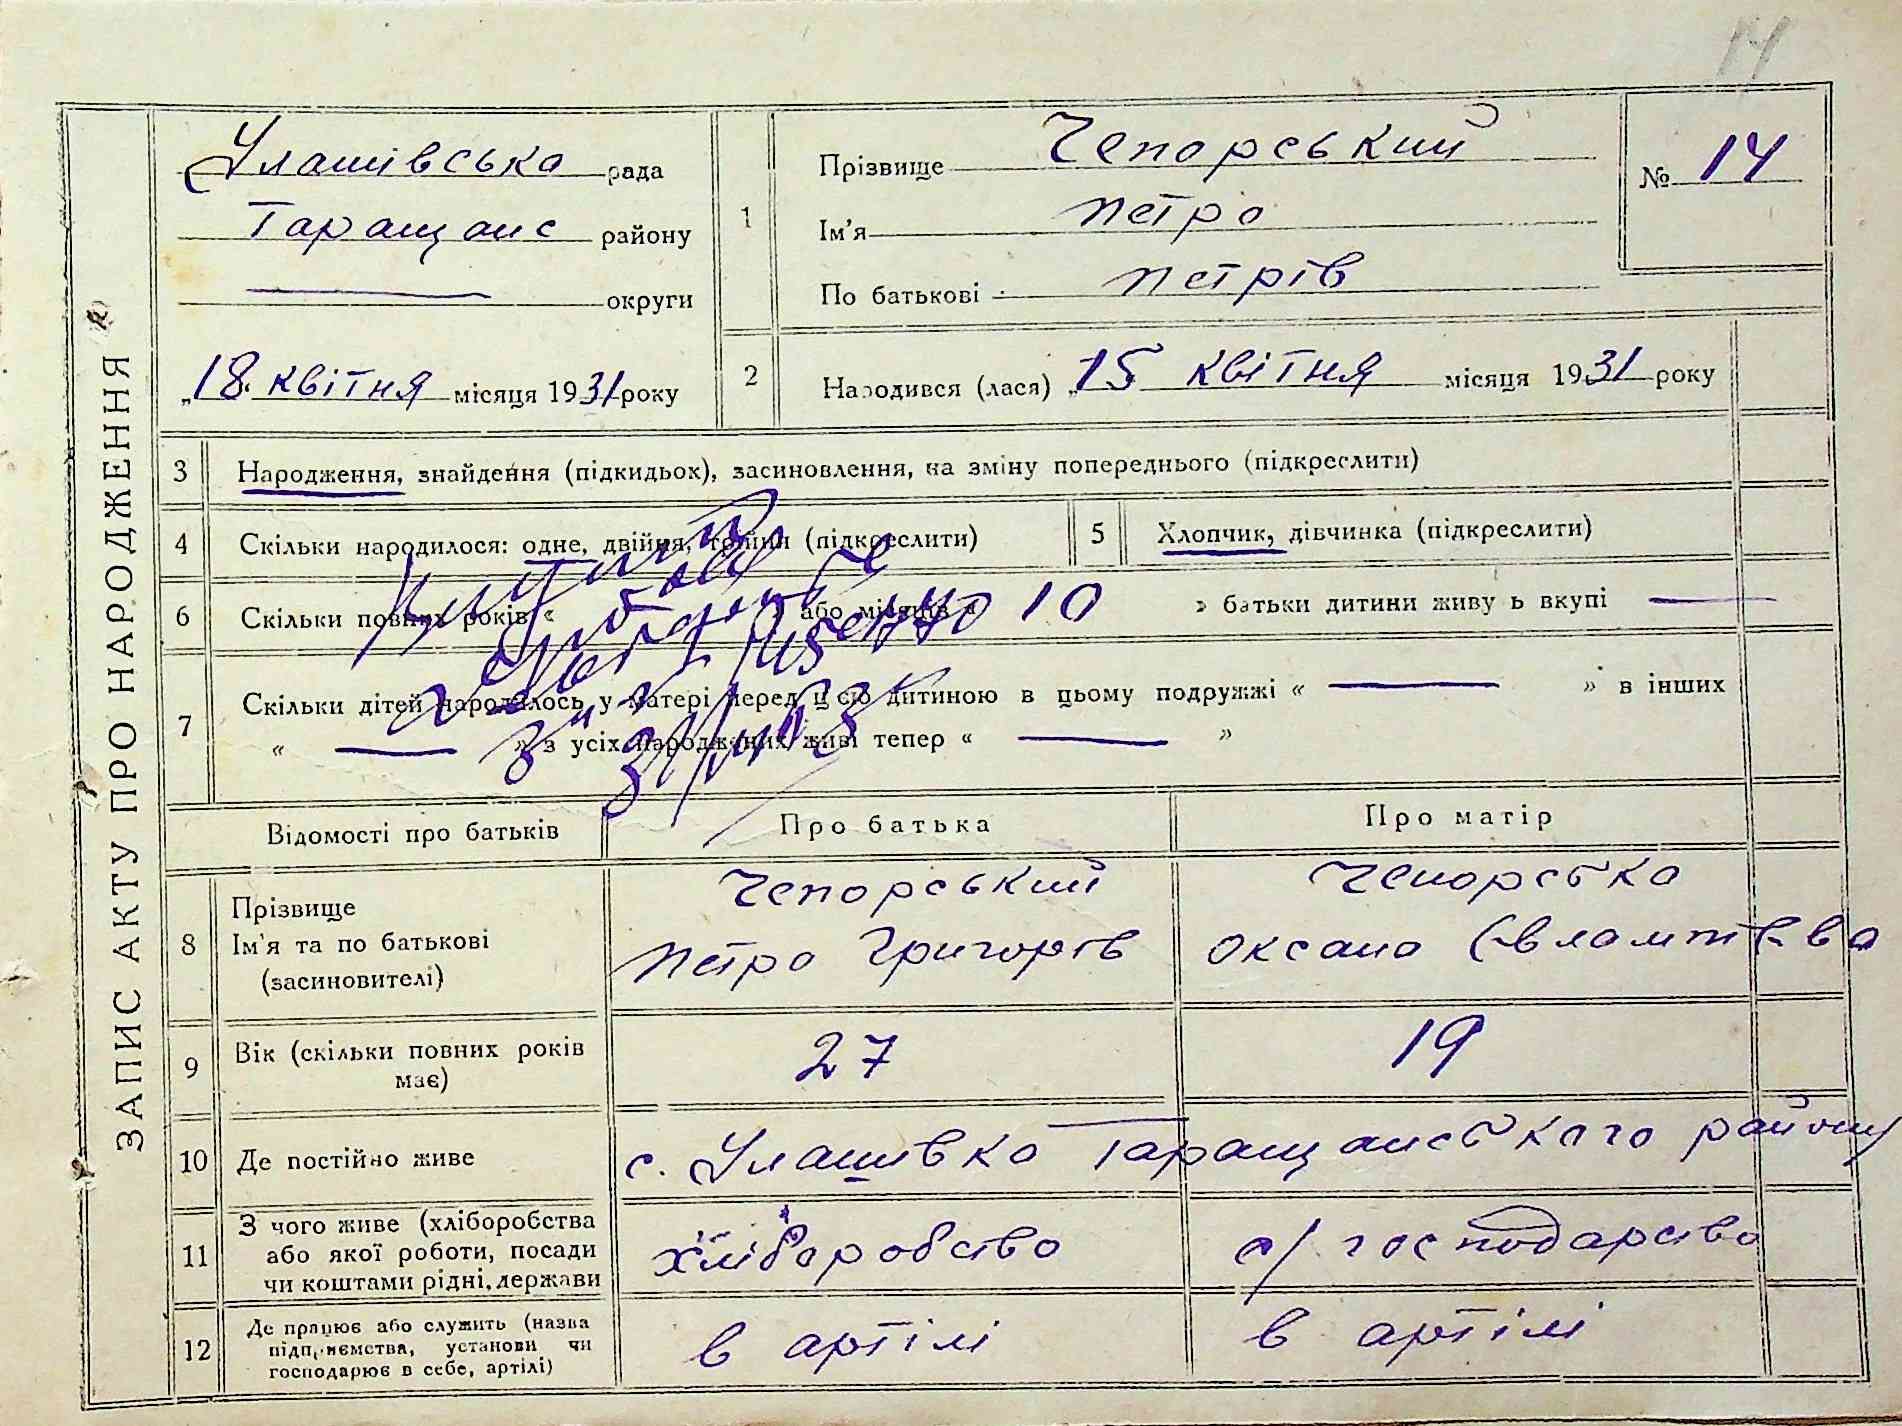 14
ЗАПИС АКТУ ПРО НАРОДЖЕННЯ
Улашівська рада
Таращанс району
округи
„18 квітня місяця 1931 року
1
Прізвище Чепорський
Ім'я Петро
По батькові Петрів
№ 14
2
Народився (лася) „15 квітня місяця 1931 року
3 Народження, знайдення (підкидьох), засиновлення, на зміну попереднього (підкреслити)
4 Скільки народилося: одне, двійня, трійня (підкреслити)
5 Хлопчик, дівчинка (підкреслити)
6 Скільки повних років « » або місяців « 10 » батьки дитини живуть вкупі
7 Скільки дітей народилось у матері перед цією дитиною в цьому подружжі « » в інших
« » з усіх народжених живі тепер « »
Відомості про батьків
Про батька
Про матір
8 Прізвище
Ім'я та по батькові
(засиновителі)
Чепорський
Петро Григорів
Чепорська
Оксана Євлампієва
9 Вік (скільки повних років
має)
27
19
10 Де постійно живе
с. Улашівка Таращанського району
11 З чого живе (хліборобства
або якої роботи, посади
чи коштами рідні, держави
хліборобство
с/господарство
12 Де працює або служить (назва
підприємства, установи чи
господарює в себе, артілі)
в артілі
в артілі